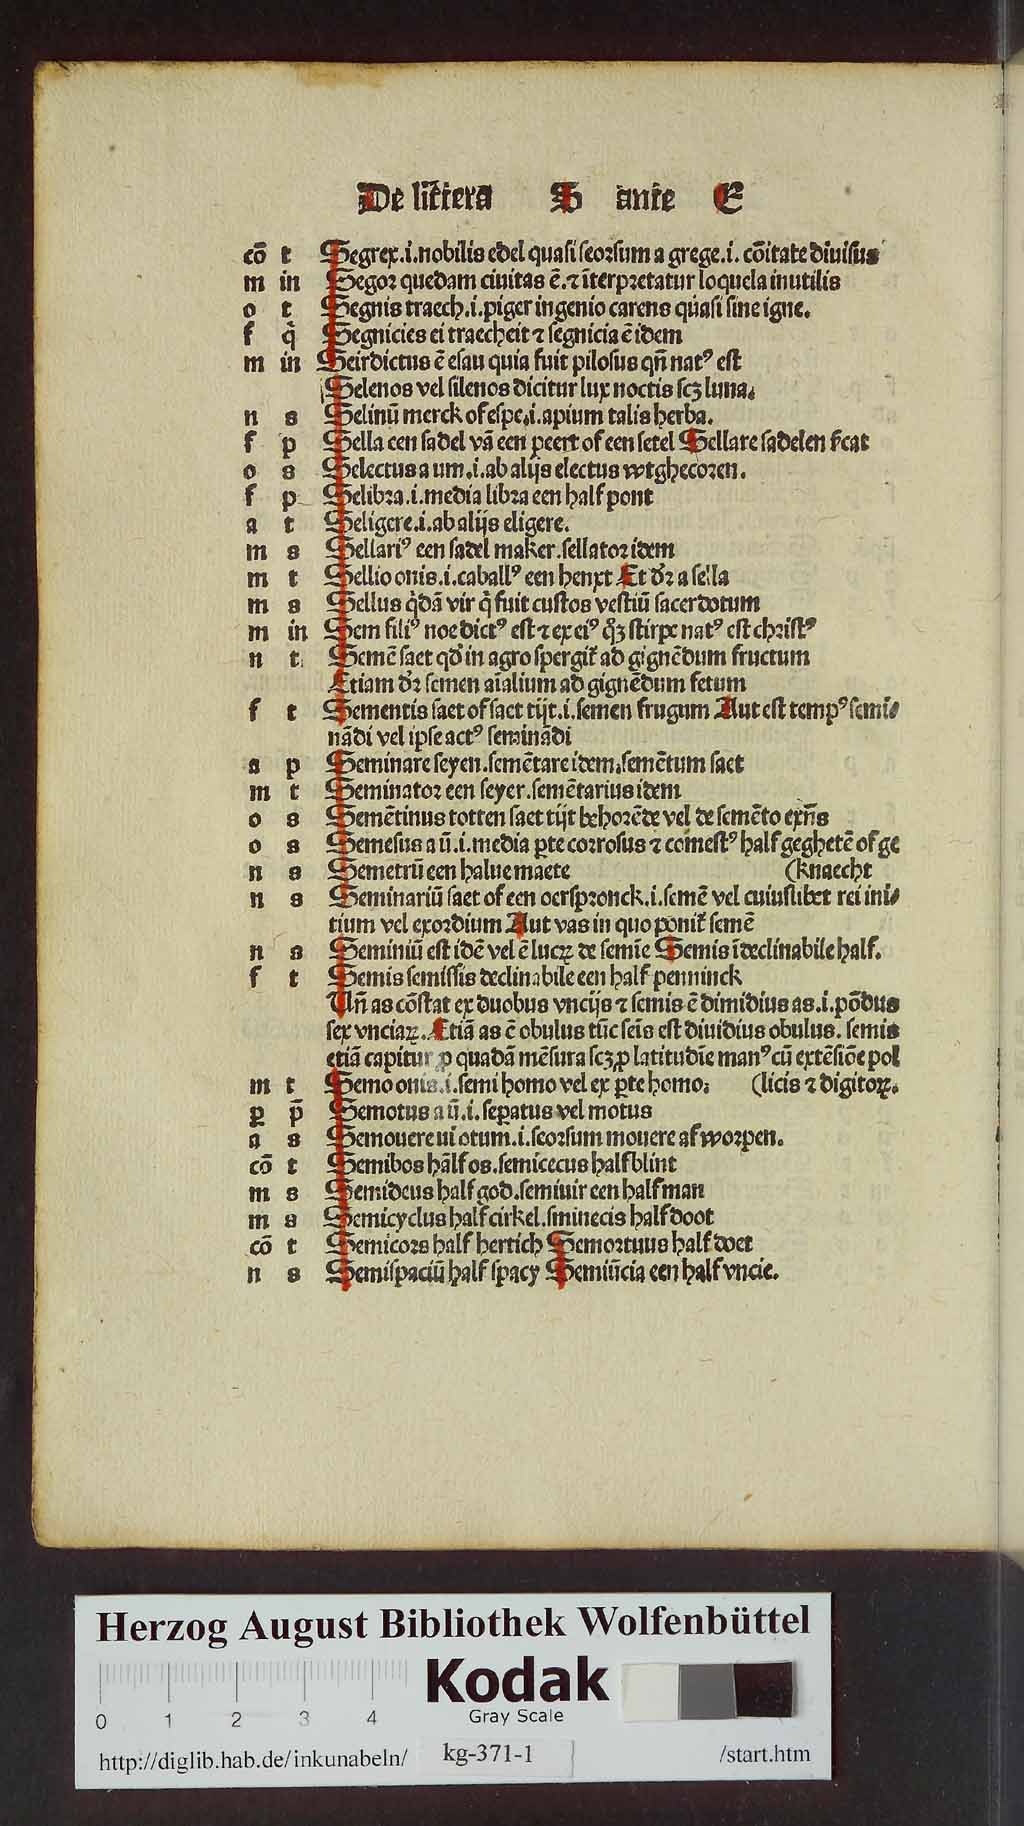 De lr̄tera S ante E
cō t Segrex.i.nobilis edel quasi seorsum a grege.i. cōitate diuisus
m in Segor quedam ciuitas ē.⁊ īterpretatur loquela inutilis
o t Segnis traech.i.piger ingenio carens quasi sine igne.
f q̄ Segnicies ei traecheit ⁊ segnicia ē idem
m in Seir dictus ē esau quia fuit pilosus qn̄ natꝰ est
Selenos vel silenos dicitur lux noctis scꝫ luna.
n s Selinū merck of espe.i.apium talis herba.
f p Sella een sadel vā een peert of een setel Sellare sadelen fcat
o s Selectus a um.i.ab alijs electus wtghecoren.
f p Selibra.i.media libra een half pont
a t Seligere.i.ab alijs eligere.
m s Sellariꝰ een sadel maker.sellator idem
m t Sellio onis.i.caballꝰ een henxt Et dr̄ a sella
m s Sellus q̇dā vir q̇ fuit custos vestiū sacerdotum
m in Sem filiꝰ noe dictꝰ est ⁊ ex eiꝰ qꝫ stirpe natꝰ est christꝰ
n t Semē saet qd̄ in agro spergit᷑ ad gignēdum fructum
Etiam dr̄ semen aīalium ad gignēdum fetum
f t Sementis saet of saet tijt.i.semen frugum Aut est tempꝰ semi⸗
nādi vel ipse actꝰ seminādi
a p Seminare seyen.semētare idem.semētum saet
m t Seminator een seyer.semētarius idem
o s Semētinus totten saet tijt behorēde vel de semēto exn̄s
o s Semesus a ū.i.media ꝑte corrosus ⁊ comestꝰ half geghetē of ge
n s Semetrū een halue maete (knaecht
n s Seminariū saet of een oerspronck.i.semē vel cuiuslibet rei ini⸗
tium vel exordium Aut vas in quo ponit᷑ semē
n s Seminiū est idē vel ē lucꝝ de semīe Semis īdeclinabile half.
f t Semis semissis declinabile een half penninck
Vn̄ as cōstat ex duobus vncijs ⁊ semis ē dimidius as.i.pōdus
sex vnciaꝝ. Etiā as ē obulus tūc seīs est diuidius obulus. semis
etiā capitur ꝓ quadā mēsura scꝫ ꝓ latitudīe manꝰ cū extēsiōe pol
m t Semo onis.i.semi homo vel ex ꝑte homo. (licis ⁊ digitoꝝ.
ꝑ p̄ Semotus a ū.i. seꝑatus vel motus
a s Semouere ui otum.i.seorsum mouere af worpen.
cō t Semibos hālf os.semicecus half blint
m s Semideus half god.semiuir een half man
m s Semicyclus half cirkel.sminecis half doot
cō t Semicors half hertich Semortuus half doet
n s Semispaciū half spacy Semiūcia een half vncie.
Herzog August Bibliothek Wolfenbüttel
Kodak
Gray Scale
0 1 2 3 4
http://diglib.hab.de/inkunabeln/ kg-371-1 /start.htm